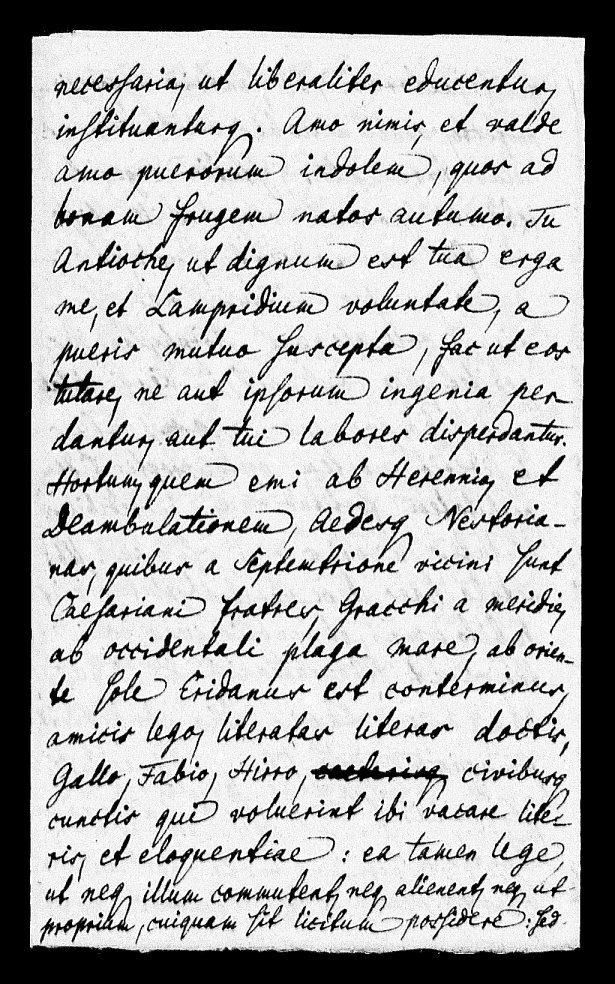 necessaria, ut liberaliter educentur,
instituanturq. Amo nimis, et valde
amo puerorum indolem, quos ad
bonam frugem natos autumo. Tu
Antioche, ut dignum est tua erga
me, et Lampridium voluntate, a
pueris mutuo suscepta, fac ut eos
tutare, ne aut ipsorum ingenia per
dantur, aut tui labores disperdantur.
Hortum, quem emi ab Herennia, et
Deambulationem, Aedesq Nestoria-
nas, quibus a Septemtrione vicini sunt
Caesariani fratres, Gracchi a meridie,
ab occidentali plaga mare, ab orien-
te sole Eridanus est conterminus,
amicis lego, literatas literas doctis,
Gallo, Fabio, Hirro, civibusq
cunctis qui voluerint ibi vacare lite-
ris, et eloquentiae : ea tamen lege,
ut neq illum commutent, neq alienent, neq ut
proprium, cuiquam sit licitum possidere : sed